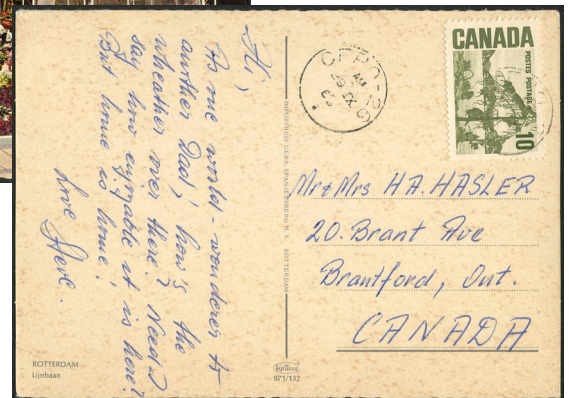 Hi,
As one world-wonderer to
another Dad; how's the
wheather over there? Need I
say how enjoyable it is here?
But home is home!
Love Steve.
ROTTERDAM
Lijnbaan
IMPORTHUIS GEBR. SPANJERSBERG N.V. ROTTERDAM
971/132
CANADA
POSTES POSTAGE
10
CFPO-26
AM
Mr & Mrs H.A. HASLER
20. Brant Ave
Brantford, Ont.
CANADA